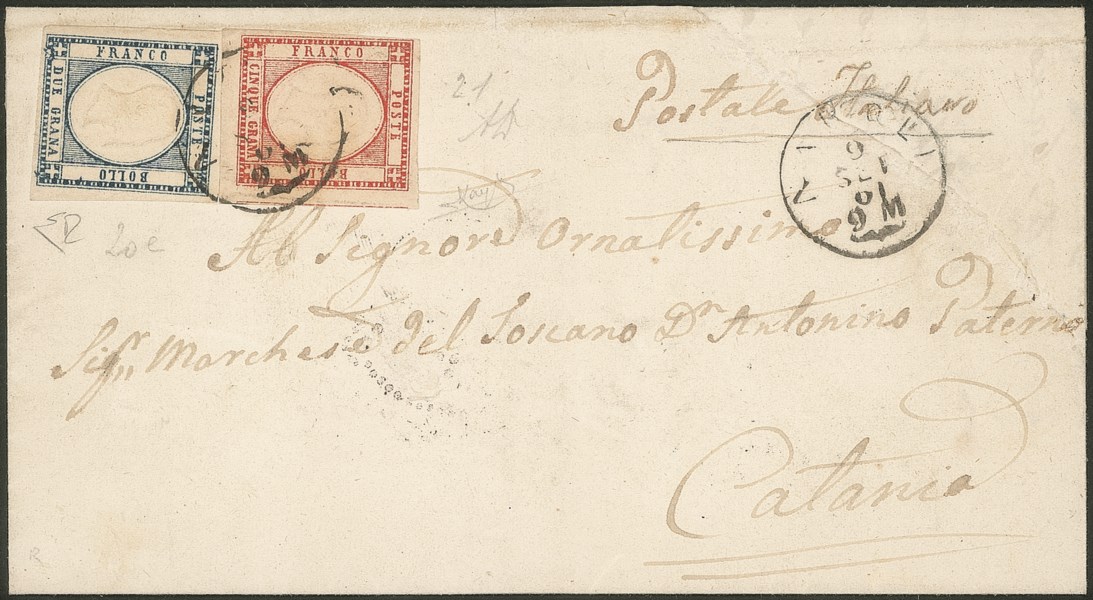 FRANCO
DUE GRANA
POSTE
BOLLO
FRANCO
CINQUE GRANA
POSTE
BOLLO
21
Postale Italiano
NAPOLI
6
SET
61
9 M
20c
Al Signore Ornatissimo
Sig.r Marchese del Toscano Dn Antonino Paternò
Catania
R